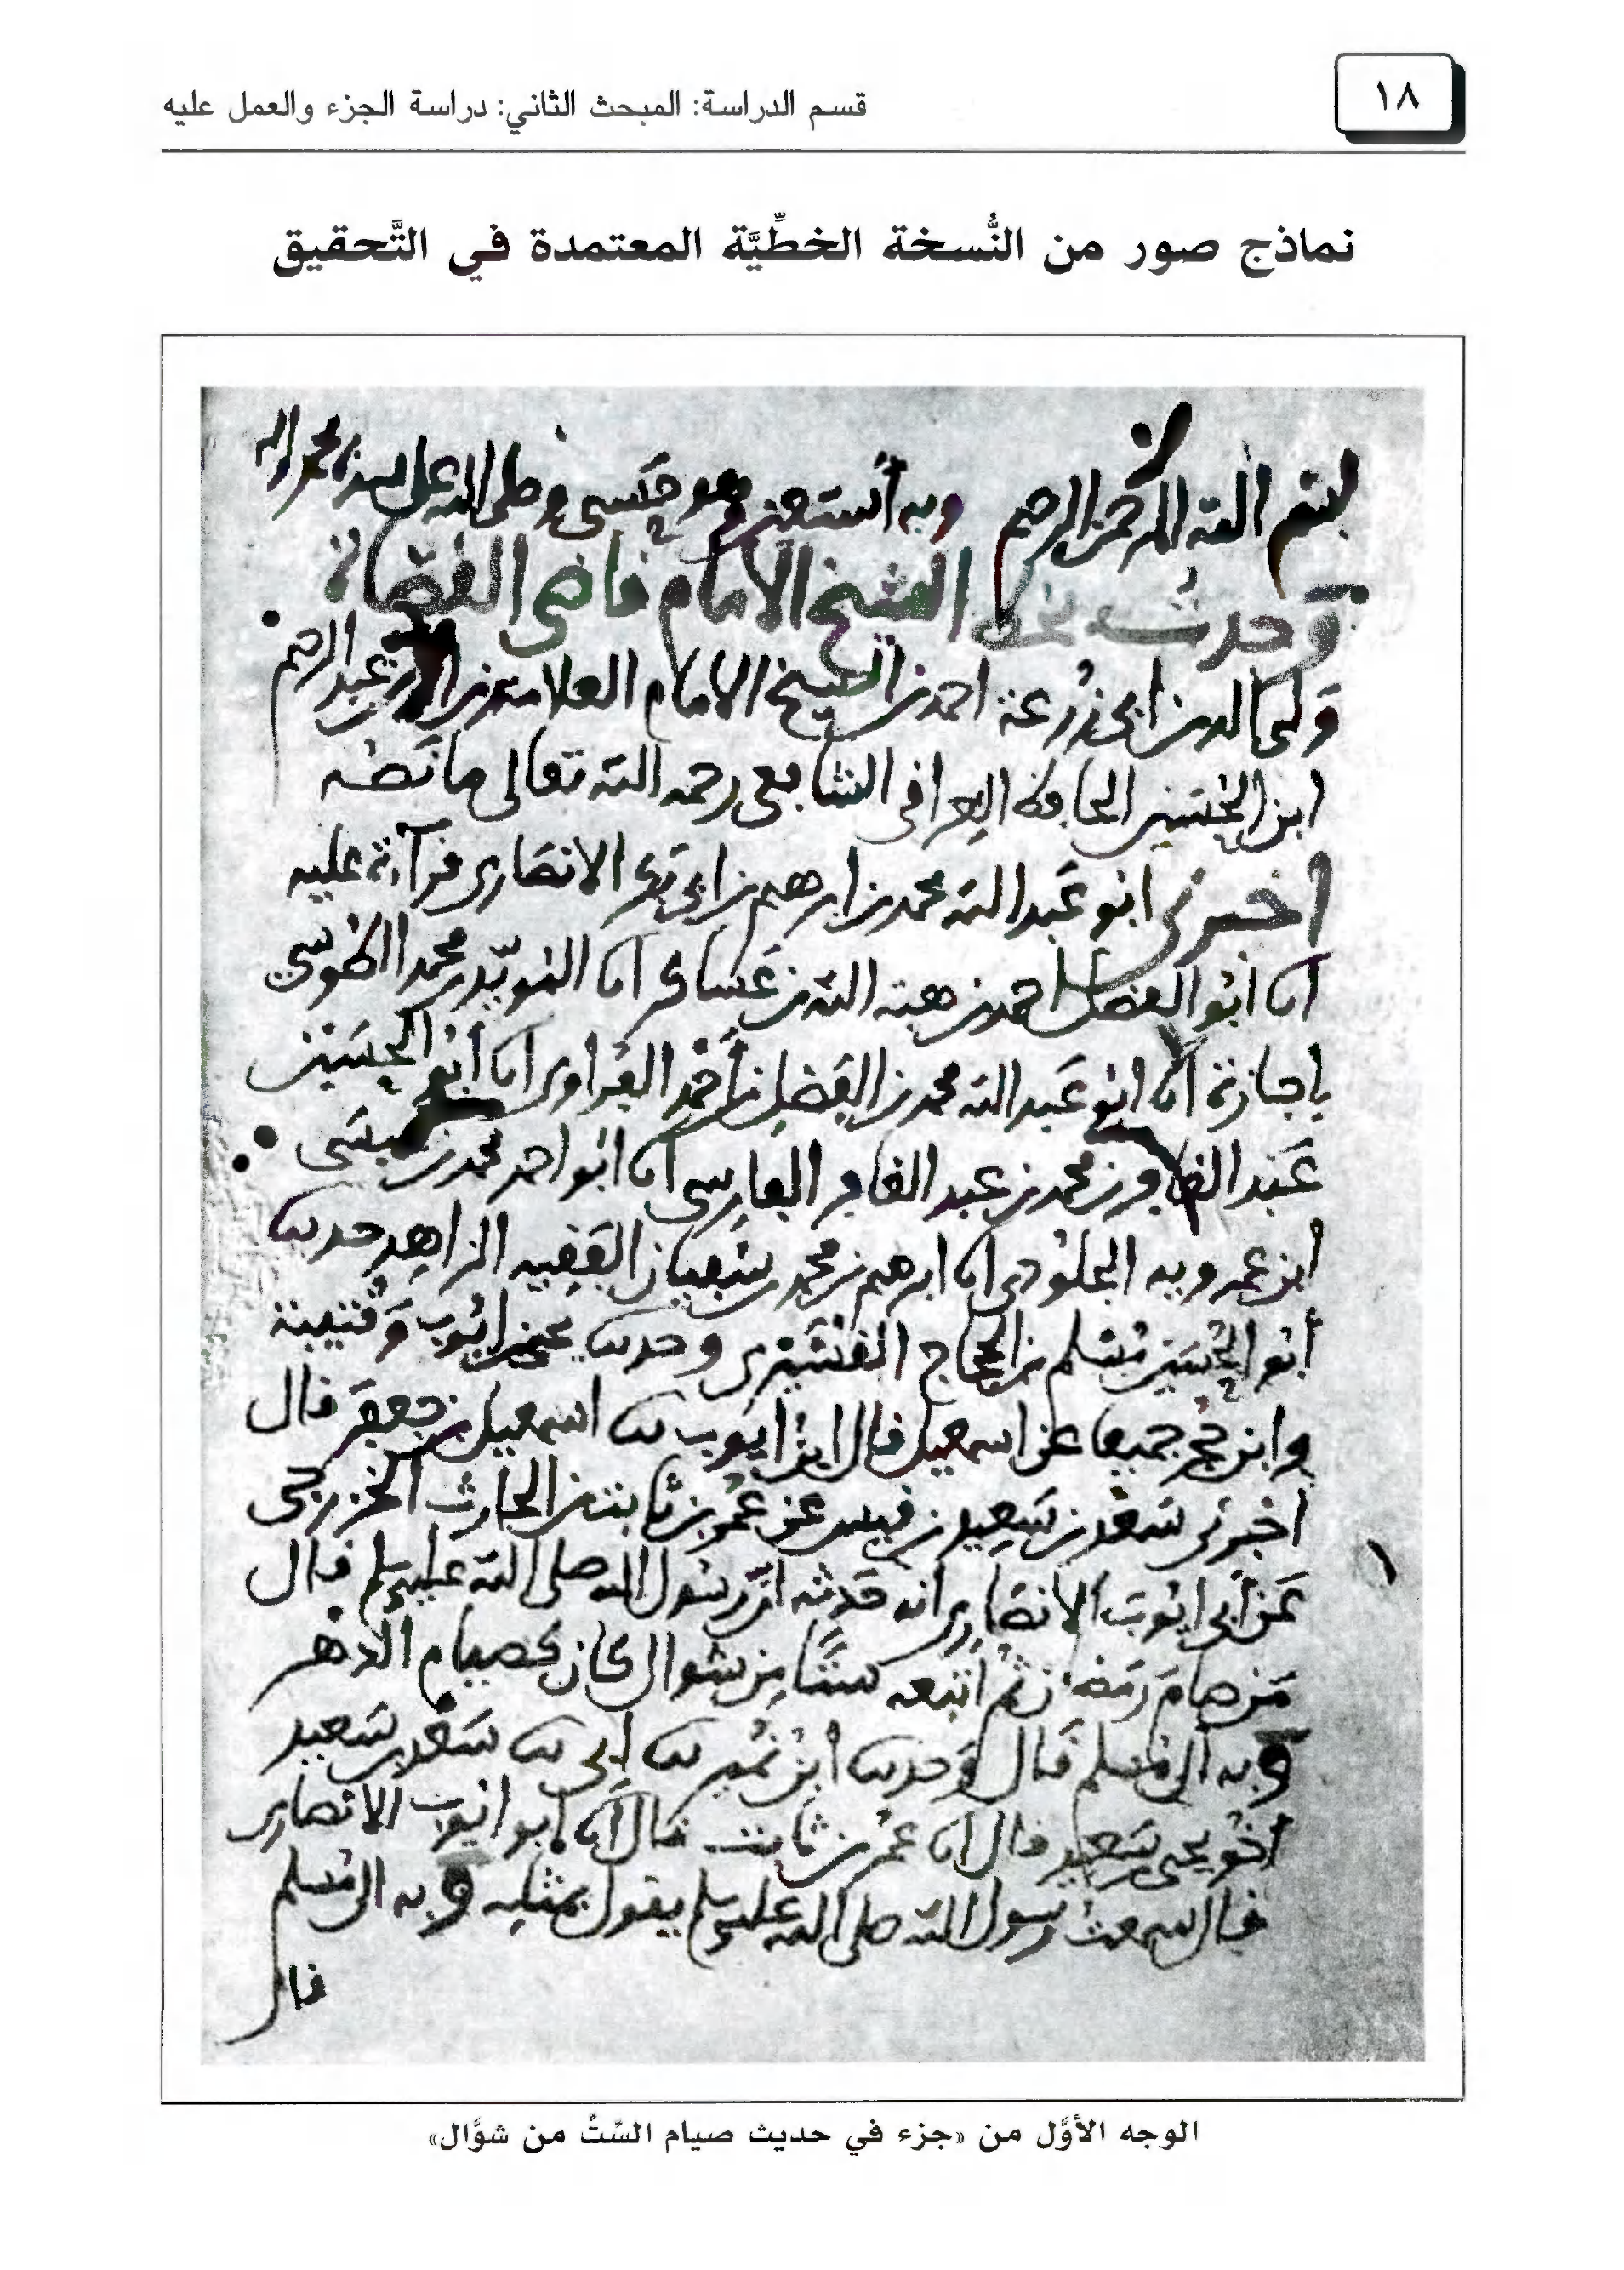 ١٨
قسم الدراسة: المبحث الثاني: دراسة الجزء والعمل عليه
نماذج صور من النُّسخة الخطِّيَّة المعتمدة في التَّحقيق
بسم الله الرحمن الرحيم وبه أستعين وهو حسبي وصلى الله على سيدنا محمد واله
وجدت بخط الشيخ الامام قاضي القضاة
ولي الدين ابي زرعة احمد بن الشيخ الامام العلامة زين الدين عبد الرحيم
ابن الحسين الحافظ العراقي الشافعي رحمه الله تعالى ما نصه
اخبرني ابو عبد الله محمد بن ابرهيم بن ابي بكر الانصاري قرآءة عليه
انا ابو الفضل احمد بن هبة الله بن عساكر انا المويّد بن محمد الطوسي
باجازة انا ابو عبد الله محمد بن الفضل بن أحمد الفراوي انا ابو الحسين
عبد الغافر بن محمد بن عبد الغافر الفارسي انا ابو احمد محمد بن عيسى
ابن عمرويه الجلودي انا ابرهيم بن محمد بن سفيان الفقيه الزاهد حدثنا
أبو الحسين مسلم بن الحجاج القشيري وحدثنا يحيى بن ايوب وقتيبة
وابن حجر جميعا عن اسمعيل قال ابن ايوب ثنا اسمعيل بن جعفر قال
اخبرني سعد بن سعيد بن قيس عن عمر بن ثابت بن الحارث الخزرجي
عن أبي ايوب الانصاري انه حدثه ان رسول الله صلى الله عليه وسلم قال
من صام رمضان ثم اتبعه ستا من شوال كان كصيام الدهر
وبه الى مسلم قال وحدثنا ابن نمير ثنا ابي ثنا سعد بن سعيد
اخو يحيى بن سعيد قال انا عمر بن ثابت قال انا ابو ايوب الانصاري
قال سمعت رسول الله صلى الله عليه وسلم يقول بمثله وبه الى مسلم
قال
الوجه الأوَّل من «جزء في حديث صيام السِّتِّ من شوَّال»